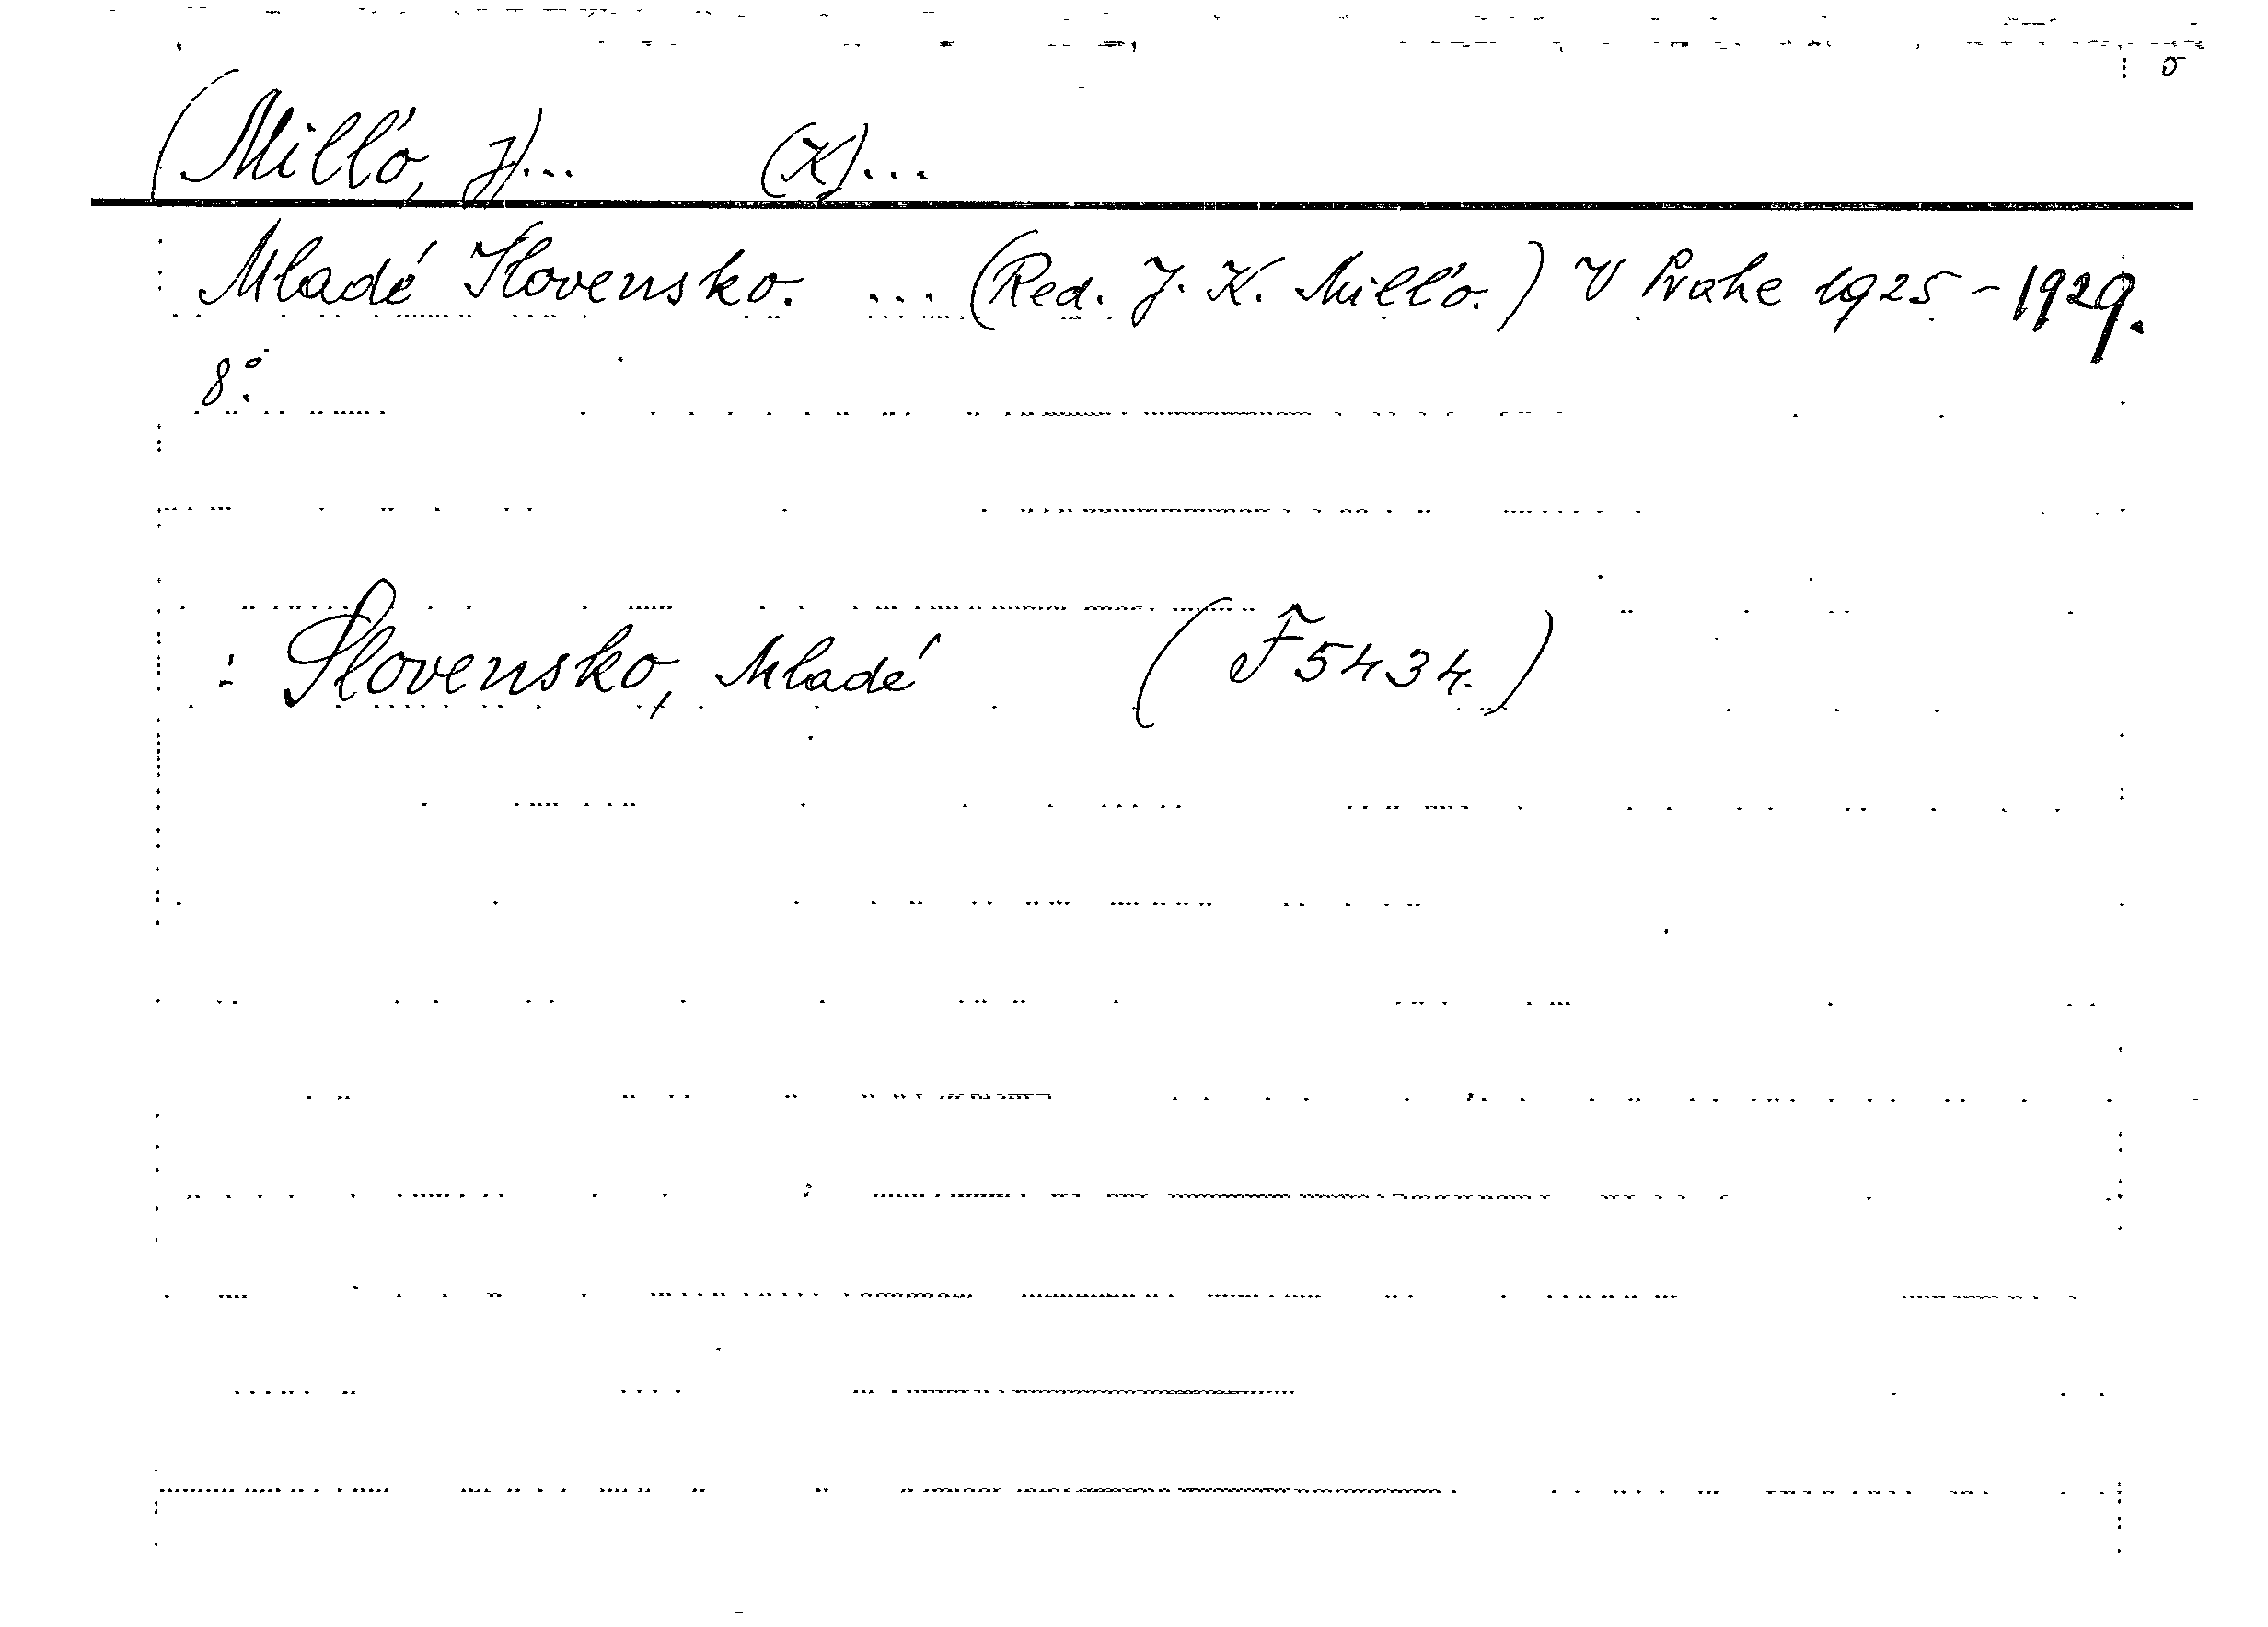 (Milľo, J)... (K)...
Mladé Slovensko. ... (Red. J. K. Milľo.) V Prahe 1925-1929.
8°.
: Slovensko, Mladé (F 5434.)